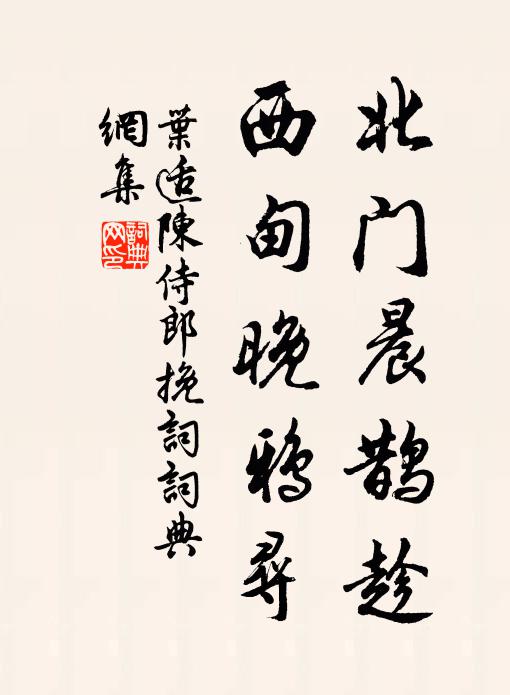 北门晨鹊趁
西甸晚鸦寻
葉适陳侍郎挽詞詞典
網集
詞典
网印